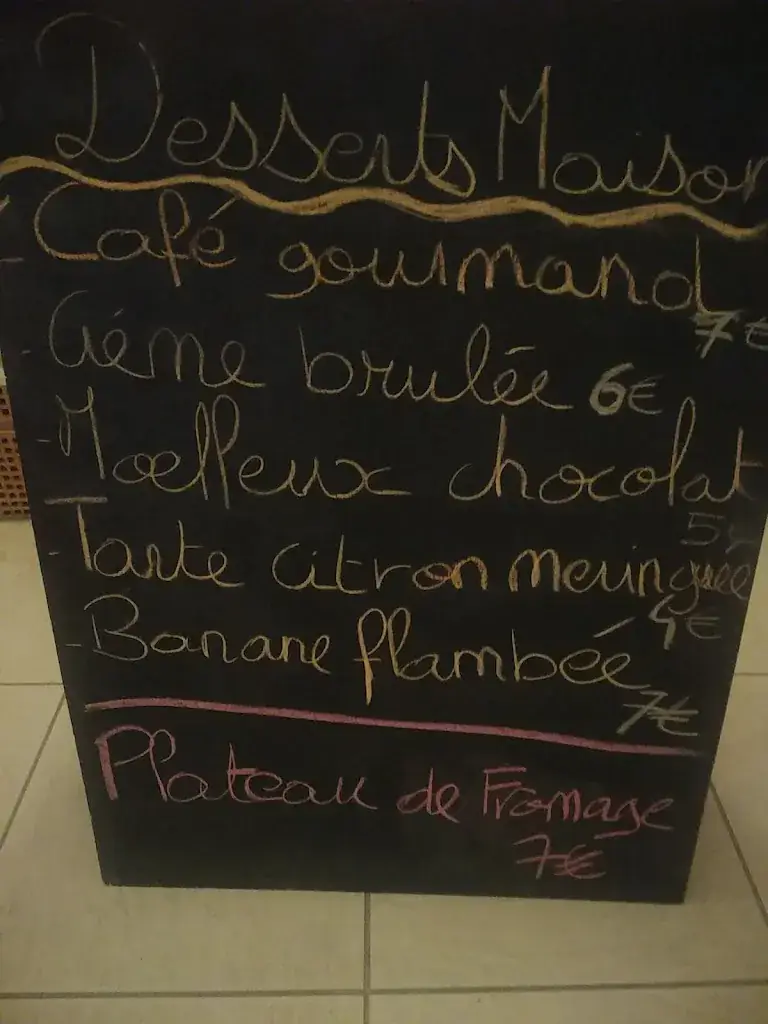 Desserts Maison
- Café gourmand
7€
- Crème brulée 6€
- Moelleux chocolat
5€
- Tarte citron meringuée
4€
- Banane flambée
7€
Plateau de Fromage
7€